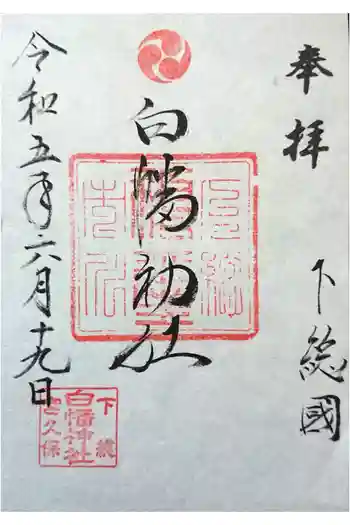 奉拝
下総國
白幡神社
令和五年六月十九日
下総
白幡神社
久保